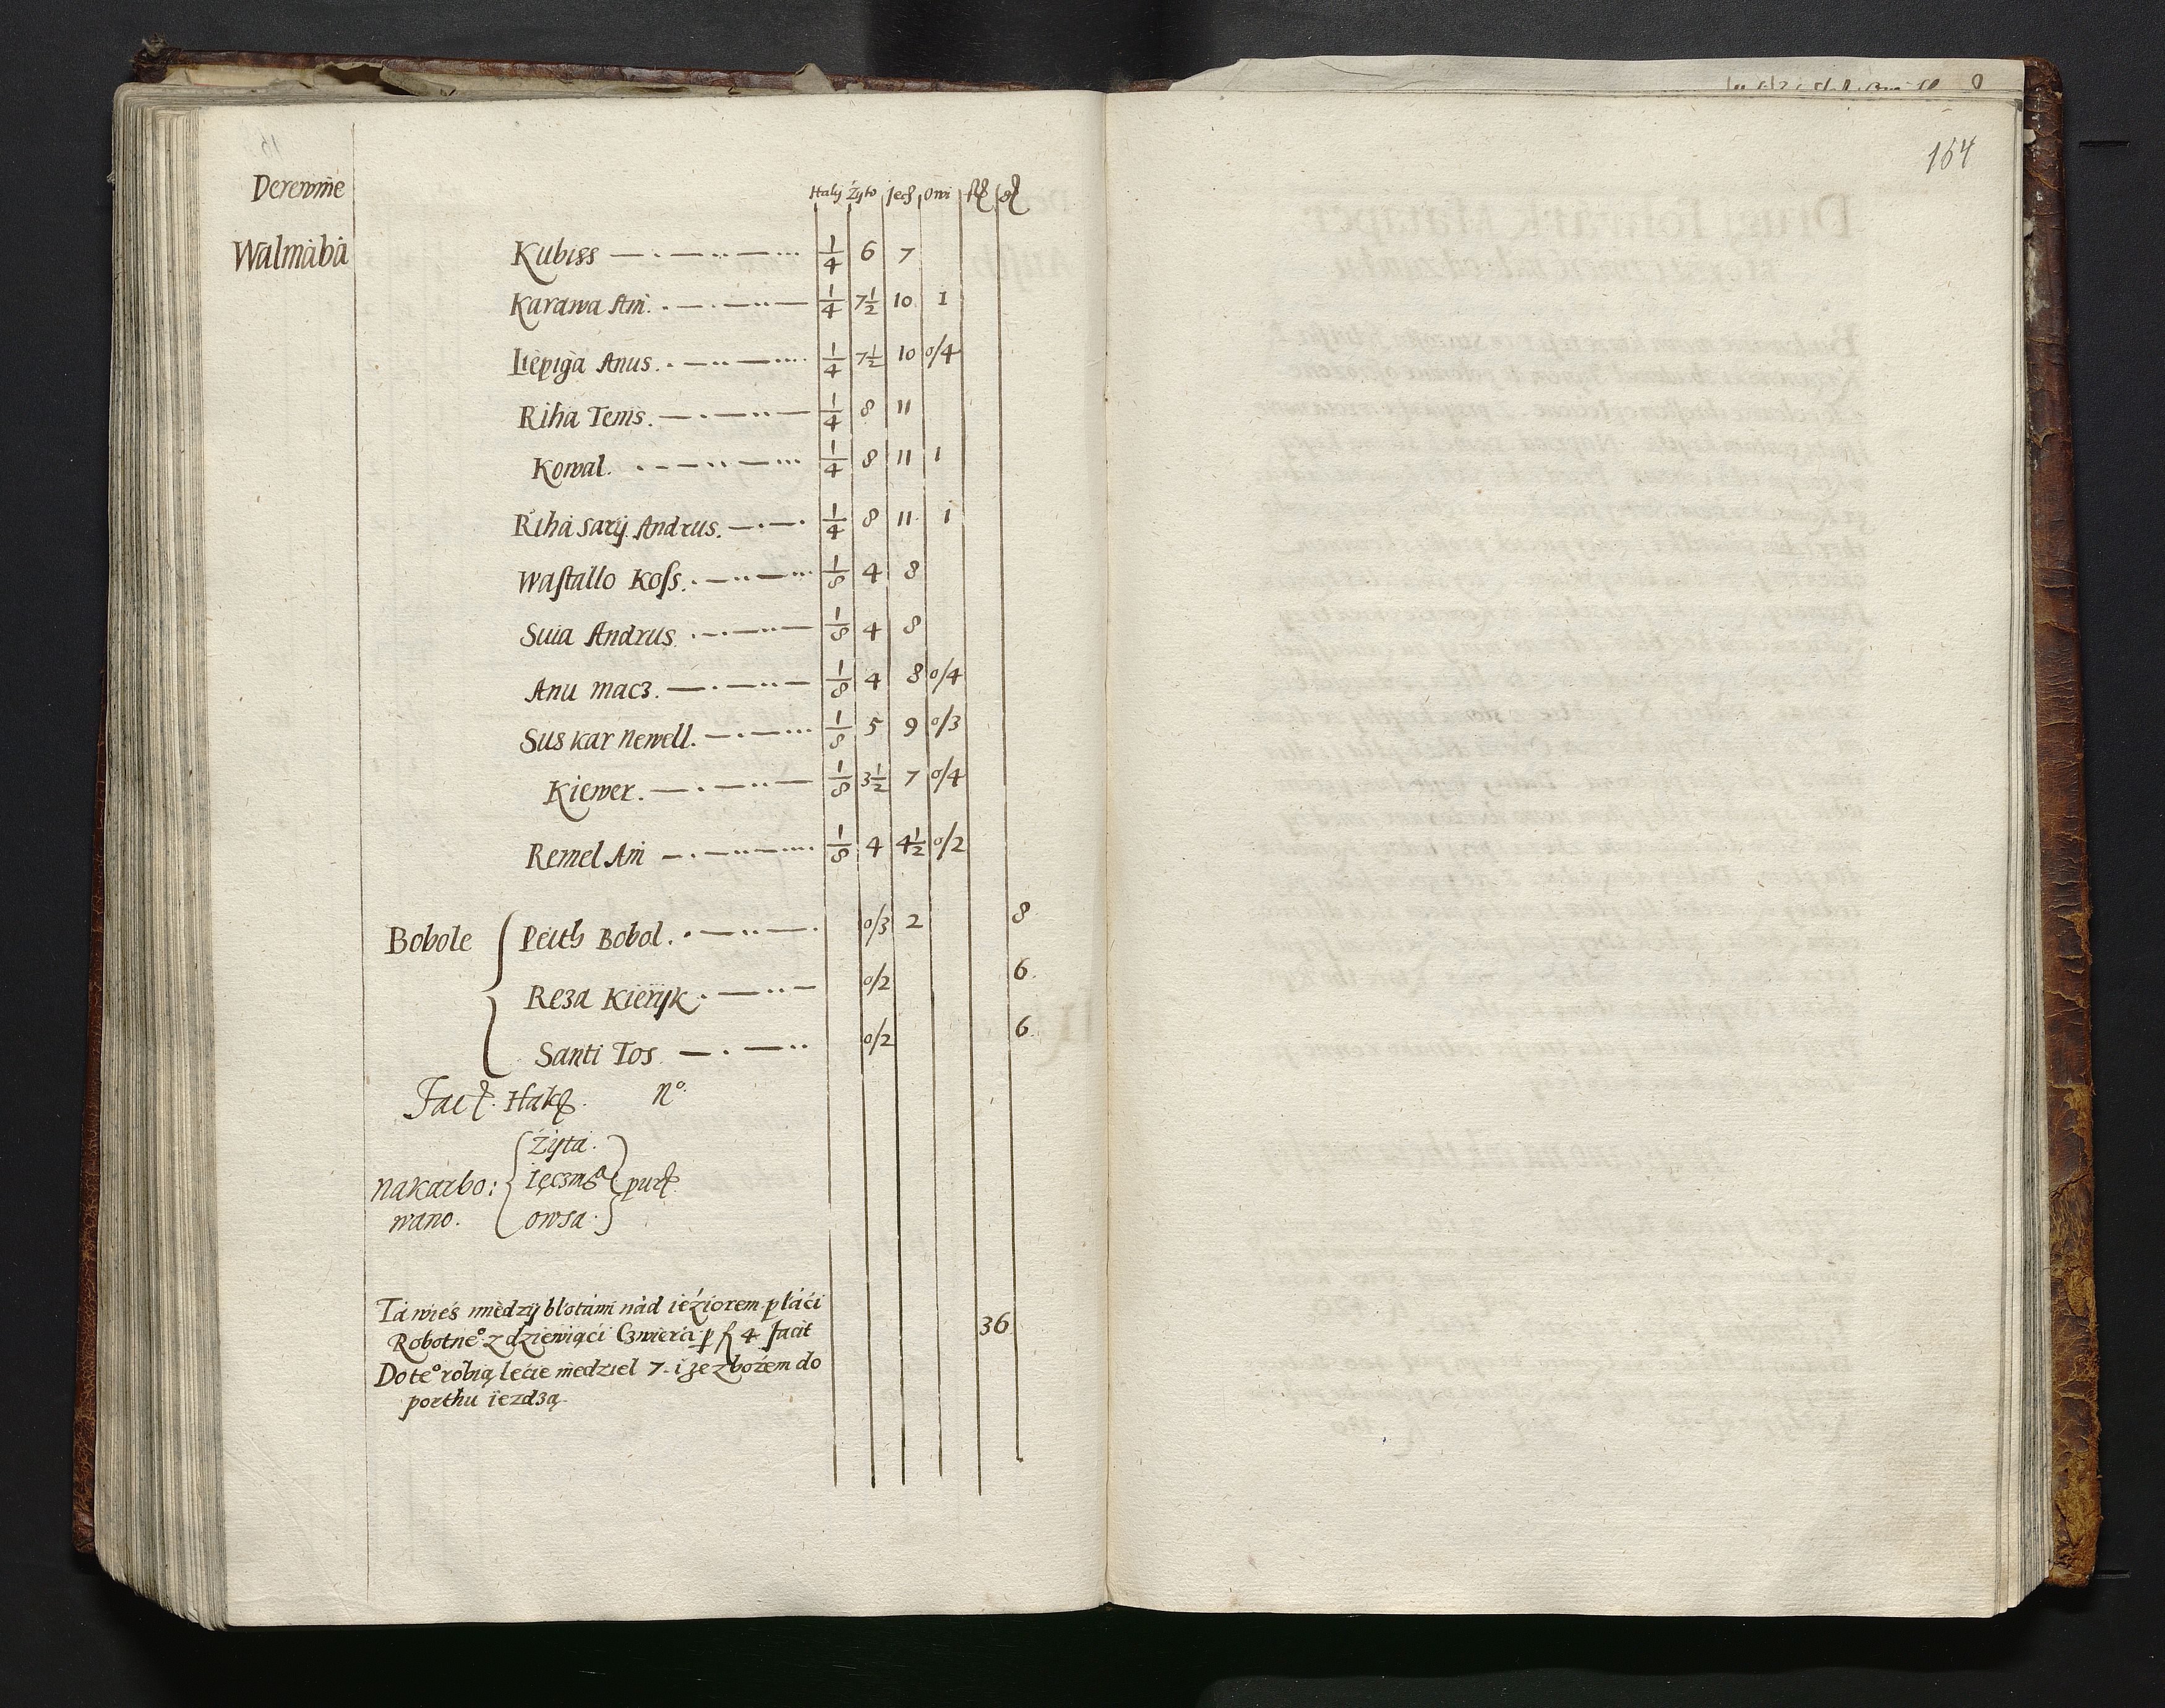 Derewnie Haky Żyto Jecz Owi
Walmábá Kubiss 1/4 6 7
Karawa Am. 1/4 7 1/2 10 1
Liepigá Anus. 1/4 7 1/2 10 0/4
Riha Tenis. 1/4 8 11
Kowal. 1/4 8 11 1
Rihá sarij Andrus. 1/4 8 11 1
Wastallo Koss. 1/8 4 8
Suia Andrus 1/8 4 8
Anu Macz. 1/8 4 8 0/4
Sus kar Newell. 1/8 5 9 0/3
Kiewer. 1/8 3 1/2 7 0/4
Remel Am 1/8 4 4 1/2 0/2
Bobole Peith Bobol. 0/3 2 8
Reza Kierijk. 0/2 6.
Santi Tos 0/2 6
Facit. Hak. No.
Żyta.
Nakarbo: Ięczma purt
wano. owsa.
Tá wieś miedzy błotámi nád ieźiorem płáći
Robotne° z dziewiąći Czwierći p f 4 facit 36
Do te° robią lećie niedziel 7. i ze zbożem do
porthu iezdzą.
154